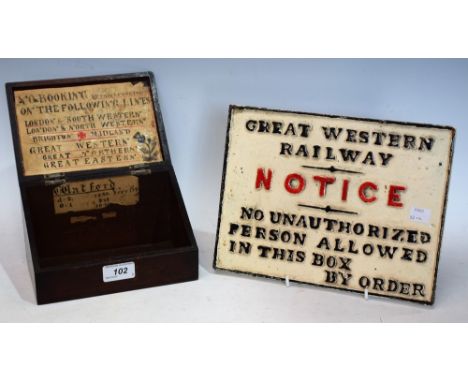 BOOKING
ON THE FOLLOWING LINES
LONDON & SOUTH WESTERN
LONDON & NORTH WESTERN
BRIGHTON MIDLAND
GREAT WESTERN
GREAT NORTHERN
GREAT EASTERN
Watford
102
GREAT WESTERN
RAILWAY
NOTICE
NO UNAUTHORIZED
PERSON ALLOWED
IN THIS BOX
BY ORDER